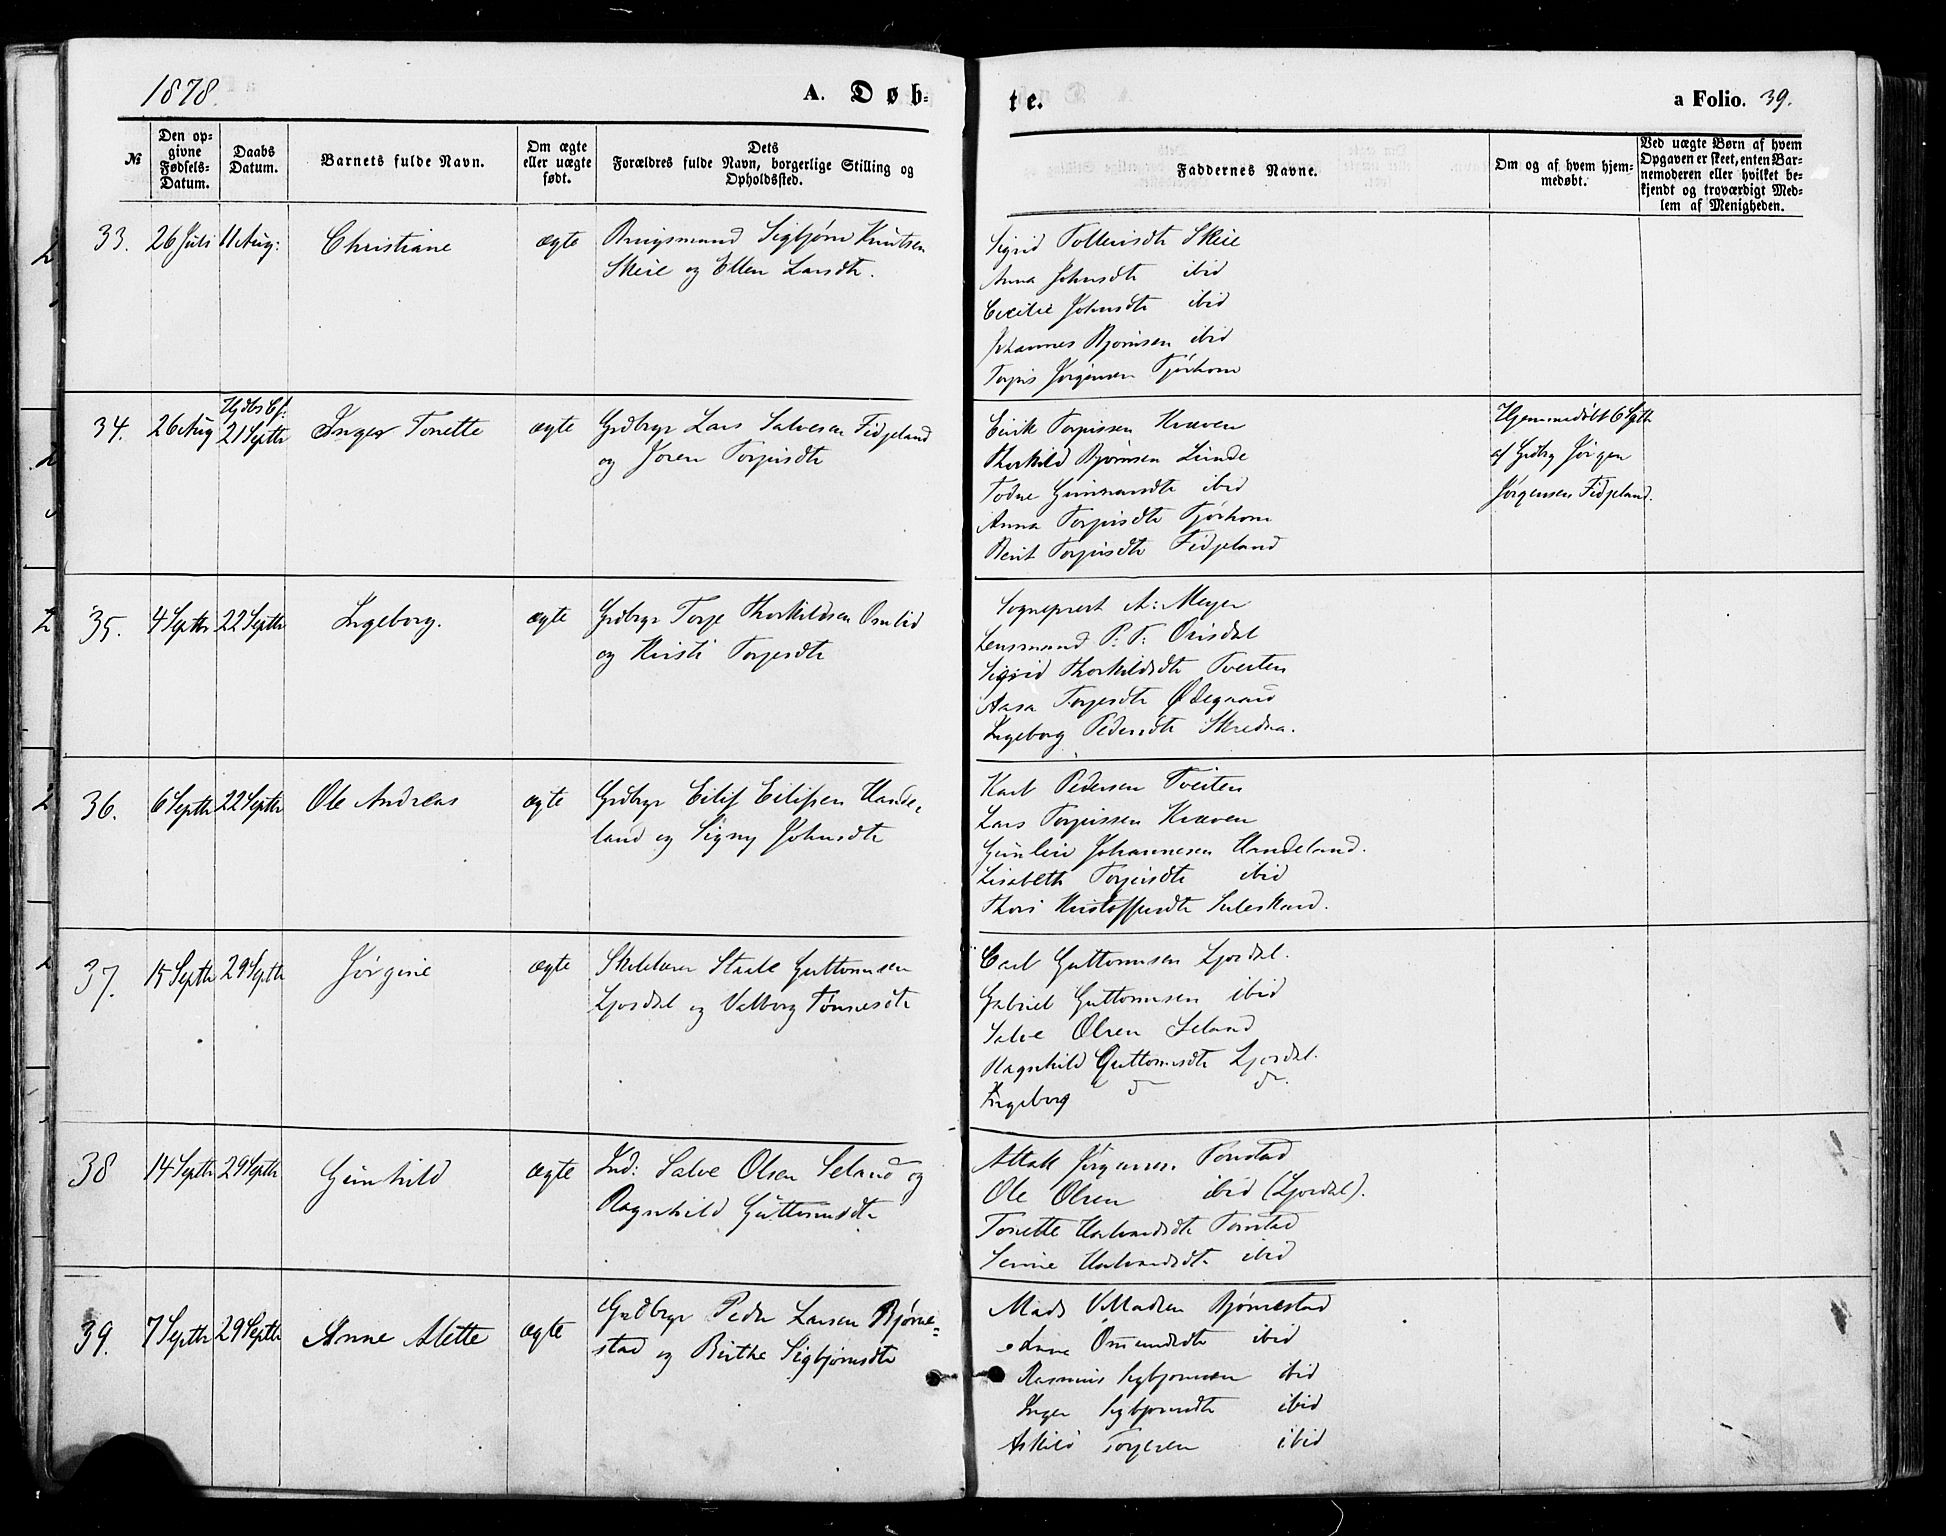 1878.
A. Døb-
te.
a Folio. 39.
№
Den op-
givne
Fødsels-
Datum.
Daabs
Datum.
Barnets fulde Navn.
Om ægte
eller uægte
født.
Dets
Forældres fulde Navn, borgerlige Stilling og
Opholdssted.
Faddernes Navne.
Om og af hvem hjem-
medøbt.
Ved uægte Børn af hvem
Opgaven er skeet, enten Bar-
nemoderen eller hvilket be-
kjendt og troværdigt Med-
lem af Menigheden.
33.
26 Juli
11 Aug:
Christiane
ægte
Brugsmand Sigbjørn Knutsen
Skeie og Ellen Larsdtr.
Sigrid Tollevsdtr Skeie
Anna Johnsdtr ibid
Cecilie Johnsdtr ibid
Johannes Bjørnsen ibid
Torpis Jørgensen Tjørhom
34.
26 Aug
21 Septbr
Inger Tonette
ægte
Grdbrgr Lars Salvesen Fidjeland
og Joren Torpisdtr
Eirik Torpissen Kvæven
Thorkild Bjørnsen Lunde
Todne Gunnarsdtr ibid
Anna Torpisdtr Tjørhom
Berit Torpisdtr Fidjeland
Hjemmedøbt 6 Sptb
af Grdbrg Jörgen
Jørgensen Fidjeland.
35.
4 Septbr
22 Septbr
Ingeborg.
ægte
Grdbrgr Torje Thorkildsen Omlid
og Kirsti Torjesdtr
Sogneprest A: Meyer
Lensmand P. T. Ousdal
Sigrid Thorkildsdtr Tveiten
Aasa Torjesdtr Ødegaard
Ingeborg Pedersdtr Skredaa.
36.
6 Septbr
22 Septbr
Ole Andreas
ægte
Grdbrgr Eilif Eilifsen Hande-
land og Signy Johnsdtr
Karl Pedersen Tveiten
Lars Torpissen Kvæven
Gunleiv Johannesen Handeland.
Lisabeth Torpisdtr ibid
Thori Kristoffersdtr Suleskard.
37.
15 Septbr
29 Septbr
Jörgine
ægte
Skolelærer Staale Guttormsen
Ljosdal og Valborg Tønnesdtr
Carl Guttormsen Ljosdal.
Gabriel Guttormsen ibid
Salve Olsen Seland
Ragnhild Guttormsdtr Ljosdal.
Ingeborg do do.
38
14 Septbr
29 Septbr
Gunhild
ægte
Ind: Salve Olsen Seland og
Ragnhild Guttormsdtr
Attak Jørgensen Tonstad
Ole Olsen ibid (Ljosdal).
Tonette Halvardsdtr Tonstad
Senie Halvardsdtr ibid
39.
7 Septbr
29 Septbr
Anne Alette
ægte
Grdbrgr Peder Larsen Bjørne-
stad og Birthe Sigbjørnsdtr
Mads Madsen Bjørnestad
Anne Omundsdtr ibid
Rasmus Sigbjørnsen ibid
Inger Sigbjørnsdtr ibid
Askild Torjesen ibid